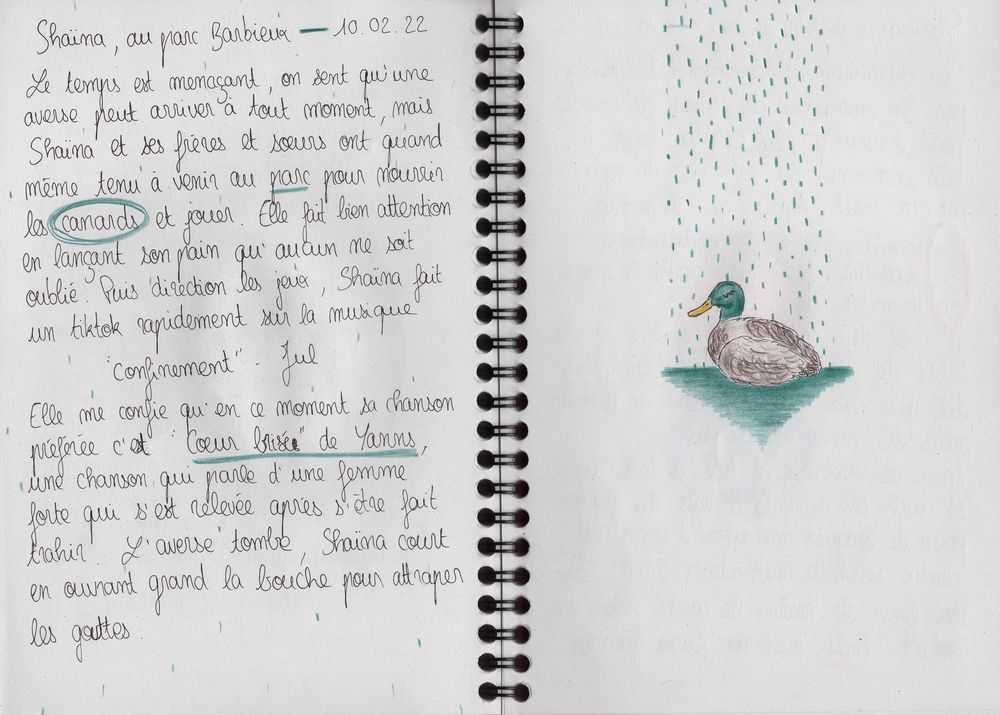 Shaïna, au parc Barbieux — 10.02.22
Le temps est menaçant, on sent qu'une
averse peut arriver à tout moment, mais
Shaïna et ses frères et soeurs ont quand
même tenu à venir au parc pour nourrir
les canards et jouer. Elle fait bien attention
en lançant son pain qu'aucun ne soit
oublié. Puis direction les jeux, Shaïna fait
un tiktok rapidement sur la musique
"confinement" - Jul
Elle me confie qu'en ce moment sa chanson
préférée c'est "Coeur brisée" de Yanns,
une chanson qui parle d'une femme
forte qui s'est relevée après s'être fait
trahir. L'averse tombe, Shaïna court
en ouvrant grand la bouche pour attraper
les gouttes.